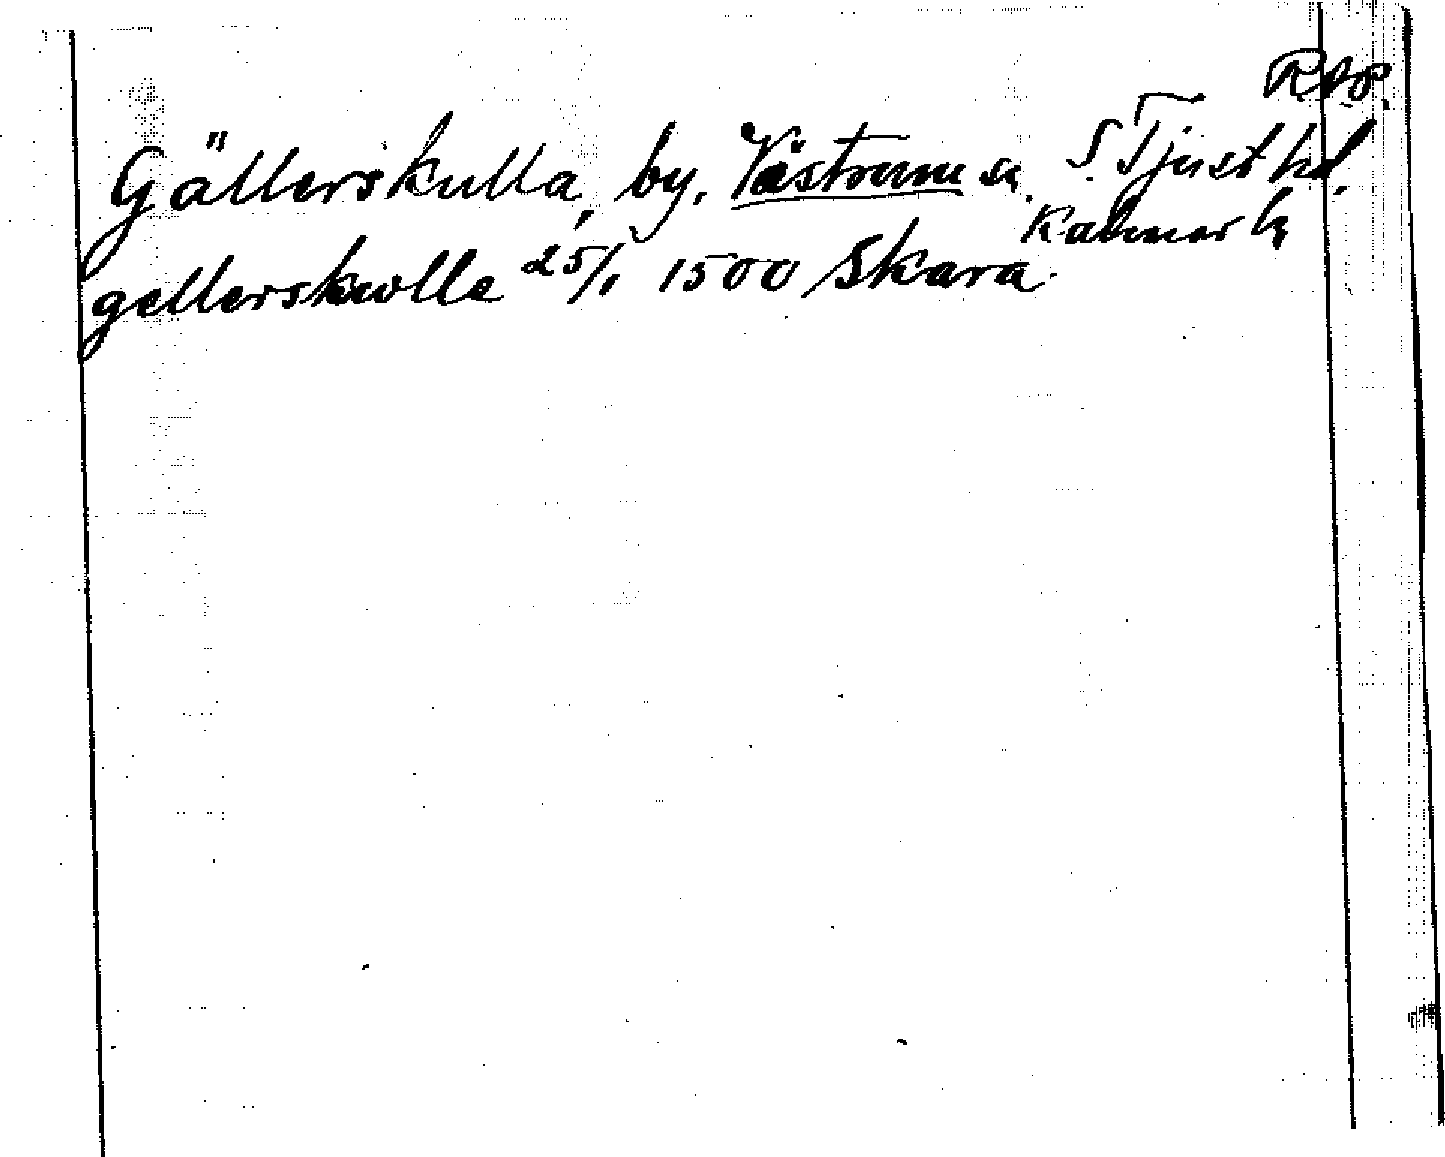 RAp.
Gällerskulla, by. Västrum sn. S. Tjust hd.
Kalmar l.
gellerskwlle 25/1 1500 Skara.